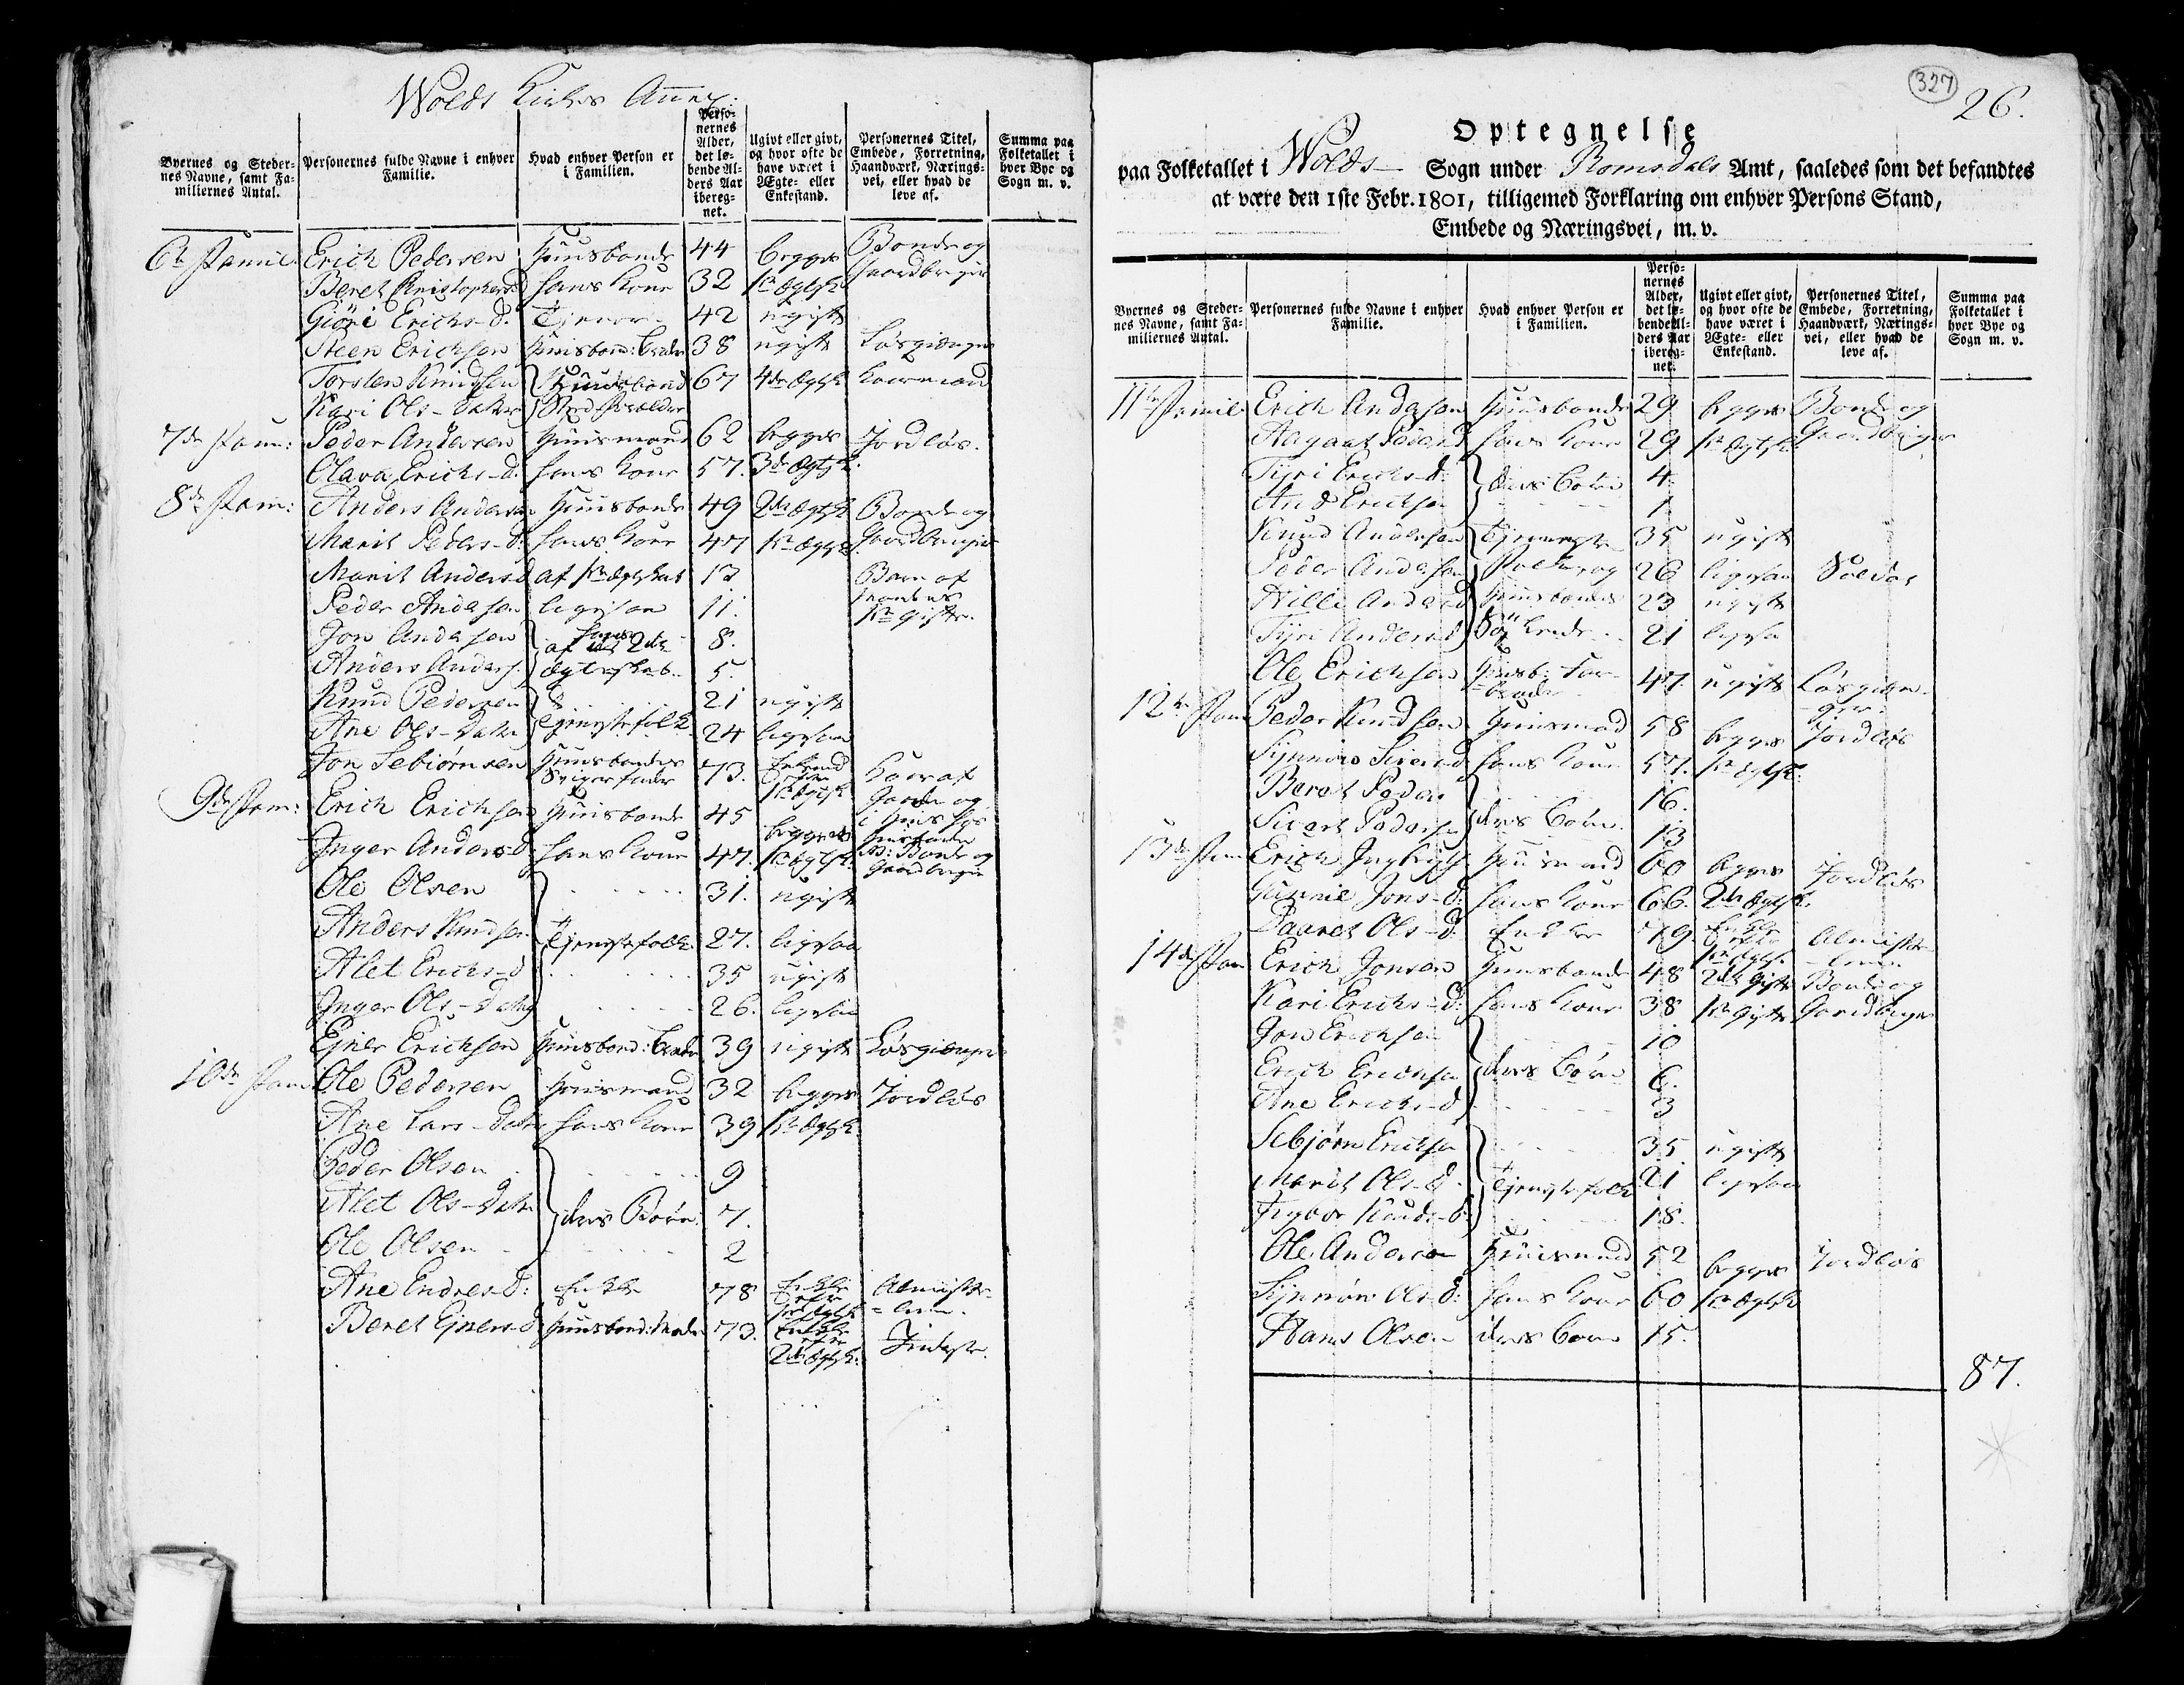 Wolds Kirkes Annex:
Byernes og Stedernes Navne, samt Familiernes Antal.
Personernes fulde Navne i enhver Familie.
Hvad enhver Person er i Familien.
Personernes Alder, det løbende Alders Aar iberegnet.
Ugivt eller givt, og hvor ofte de have været i Ægte- eller Enkestand.
Personernes Titel, Embede, Forretning, Haandværk, Næringsvei, eller hvad de leve af.
Summa paa Folketallet i hver Bye og Sogn m. v.
6te Famil: Erich Pedersen Huusbonde 44 begges Bonde og
Beret Christophersd hans Kone 32 1te Ægtsk Gaardbruger
Giöri Erichs-d. Tjener 42 ugift
Steen Erichsen Huusbond: Broder 38 ugift Løsgienger
Torsten Knudsen Huusbond 67 4de Ægtsk Kaarmand
Kari Ols-Datter Stedforælder
7de Fam: Peder Andersen Huusmand 62 begges Jordløs.
Olava Erichs-d: hans Kone 57. 3de Ægtsk.
8de Fam: Anders Andersen Huusbonde 49 2det Ægtsk Bonde og
Marit Peders-d: hans Kone 47 1te Ægtsk Gaardbruger
Marit Andersd af 1te Ægtskab 12 Barn af
Peder Andersen ligesaa 11. Mandens
1te Gifte.
Jon Andersen 8.
af 2det
Anders Anders. Ægteskab. 5.
Knud Pedersen 21 ugift
Ane Ols-Datter Tjenestefolk 24 ligesaa
Jon Sebiörnsen Huusbondes Svigerfader 73. Enkemand efter 1te Ægtsk Kaar af
9de Fam: Erich Erichsen Huusbonde 45 begges Gaarden og
Inger Anders-d hans Kone 47. 1te Ægtsk. Bonde og Gaardbruger
Ole Olsen 31. ugift
Anders Knudsen Tjenestefolk 27. ligesaa
Alet Erichs-d 35 ugift
Inger Ols-Datter 26. ligesaa
Ejner Erichsen Huusbond: Broder 39 ugift Løsgienger
10de Fam Ole Pedersen Huusmand 32 begges Jordløs
Ane Lars-Datter hans Kone 39 1te Ægtsk.
Peder Olsen 9
Alet Ols-Datter deres Børn 7.
Ole Olsen 2
Ane Endres-D: Enke 78 Enke efter 1te Ægtsk Almisselem.
Beret Ejners-d Huusbond: Moder 73. Enke efter 2det Ægtsk: Inderste.
327
26.
Optegnelse
paa Folketallet i Wolds Sogn under Romsdals Amt, saaledes som det befandtes
at være den 1ste Febr. 1801, tilligemed Forklaring om enhver Persons Stand,
Embede og Næringsvei, m. v.
Byernes og Stedernes Navne, samt Familiernes Antal.
Personernes fulde Navne i enhver Familie.
Hvad enhver Person er i Familien.
Personernes Alder, det løbende Alders Aar iberegnet.
Ugivt eller givt, og hvor ofte de have været i Ægte- eller Enkestand.
Personernes Titel, Embede, Forretning, Haandværk, Næringsvei, eller hvad de leve af.
Summa paa Folketallet i hver Bye og Sogn m. v.
11te Famil Erich Andersen Huusbonde 29 begges Bonde og
Aagaat Pedersd hans Kone 29 1te Ægtsk Gaardbruger
Tyri Erichs-d: deres Børn 4
And Erichsen 1
Knud Andersen Tjeneste 35 ugift
Peder Andersen Folk og 26 ligesaa Soldat
Nilli Andersd Huusbondes 23 ugift
Tyri Andersd Södskende 21 ligesaa
Ole Erichsen Huusb: Farbroder 47. ugift Løsgienger.
12te Fam Peder Knudsen Huusmand 58 begges Jordløs
Synnøve Siversd hans Kone 57. 1te Ægtsk:
Beret Peders 16.
Sivert Pedersen deres Børn. 13
13de Fam Erich Ingebrigts Huusmand 60 begges Jordløs
Gunnil Jons-d: hans Kone 66. 2det Ægtsk.
Daaret Ols-d: Enke 79 Enke efter 1te Ægtsk. Almisselem.
14de Fam Erich Jonsen Huusbonde 48 2det Gifte Bonde og
Kari Erichs-d: hans Kone 38 1te Gifte Gaardbruger
Jon Erichsen 10
Erich Erichsen deres Børn 6.
Ane Erichs-d 3
Sebjörn Erichsen 35 ugift
Marit Ols-d. Tjenestefolk 21 ligesaa
Ingebor Knuds-d: 18.
Ole Andersen Huusmand 52 begges Jordløs
Synnöv Ols-d: hans Kone 60 1te Ægtsk
Hans Olsen deres Barn 15.
87.